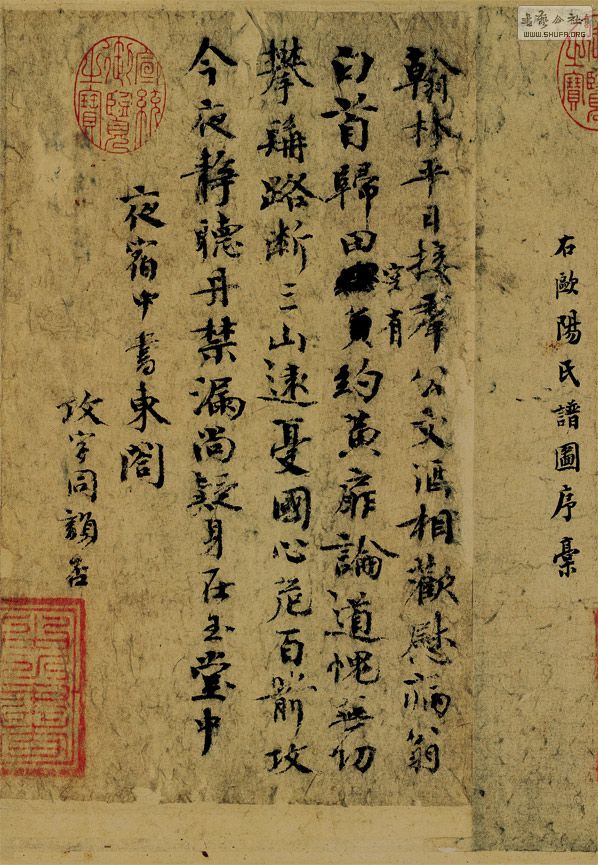 书艺公社
WWW.SHUFA.ORG
右歐陽氏譜圖序藁
翰林平日接羣公文酒相歡慰病翁
白首歸田空有負約黃扉論道愧無功
攀髯路斷三山遠憂國心危百箭攻
今夜靜聽丹禁漏尚疑身在玉堂中
夜宿中書東閣
攻字同韻否
宣統御覽之寶